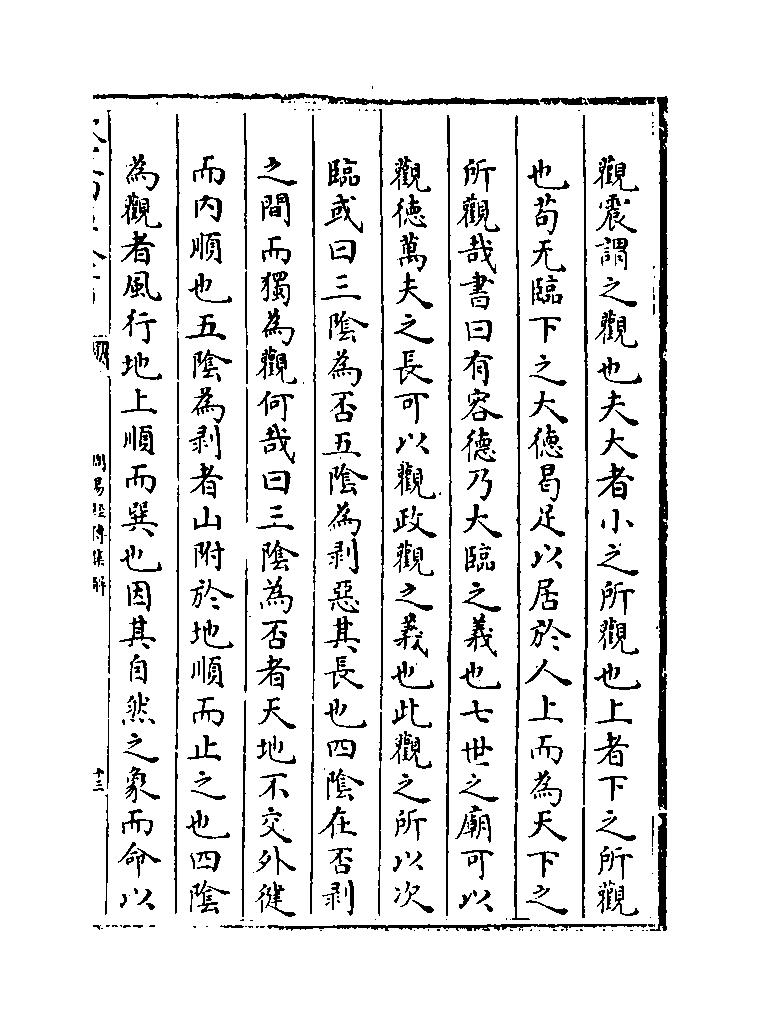 觀震謂之觀也夫大者小之所觀也上者下之所觀
也苟无臨下之大德曷足以居於人上而為天下之
所觀哉書曰有容德乃大臨之義也七世之廟可以
觀德萬夫之長可以觀政觀之義也此觀之所以次
臨或曰三陰為否五陰為剥惡其長也四陰在否剥
之間而獨為觀何哉曰三陰為否者天地不交外健
而内順也五陰為剥者山附於地順而止之也四陰
為觀者風行地上順而巽也因其自然之象而命以
周易經傳集解
十三